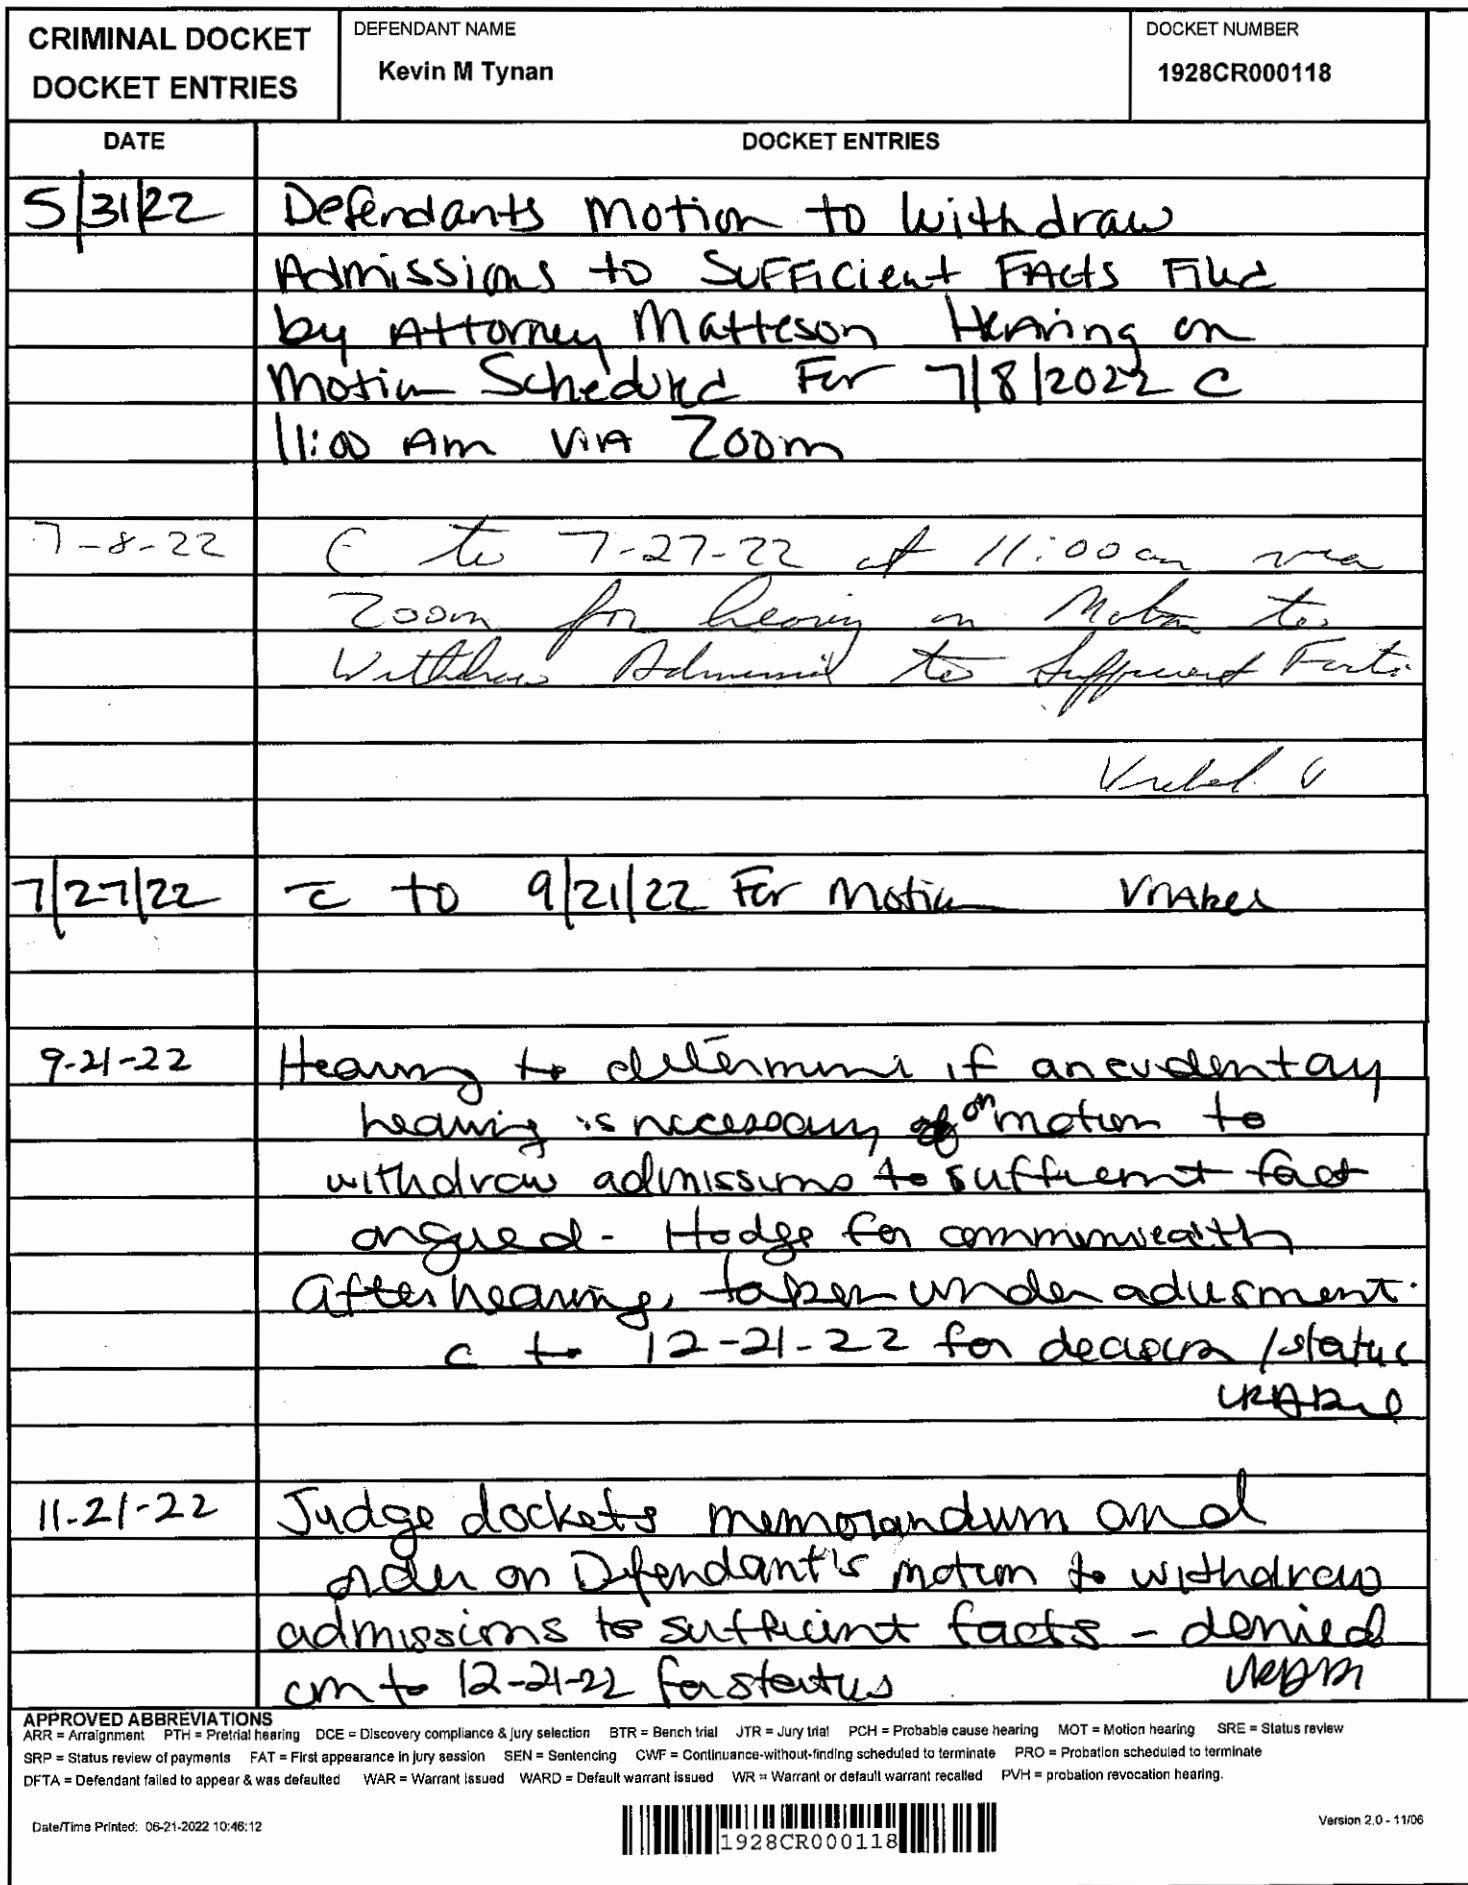 CRIMINAL DOCKET
DOCKET ENTRIES
DEFENDANT NAME
Kevin M Tynan
DOCKET NUMBER
1928CR000118
DATE
DOCKET ENTRIES
5/31/22 Defendants Motion to Withdraw
Admissions to Sufficient Facts Filed
by Attorney Matteson Hearing on
Motion Scheduled For 7/8/2022 C
11:00 Am VIA Zoom
7-8-22 C to 7-27-22 at 11:00 am via
Zoom for hearing on Motion to
Withdraw Admission to Sufficient Facts
7/27/22 C to 9/21/22 For Motion
9-21-22 Hearing to determine if an evidentary
hearing is necessary on motion to
withdraw admissions to sufficient fact
argued - Hodge for commonwealth
After hearing, taken under advisment.
c to 12-21-22 for decision / status
11-21-22 Judge dockets memorandum and
order on Defendant's motion to withdraw
admissions to sufficient facts - denied
cm to 12-21-22 for status
APPROVED ABBREVIATIONS
ARR = Arraignment PTH = Pretrial hearing DCE = Discovery compliance & jury selection BTR = Bench trial JTR = Jury trial PCH = Probable cause hearing MOT = Motion hearing SRE = Status review
SRP = Status review of payments FAT = First appearance in jury session SEN = Sentencing CWF = Continuance-without-finding scheduled to terminate PRO = Probation scheduled to terminate
DFTA = Defendant failed to appear & was defaulted WAR = Warrant issued WARD = Default warrant issued WR = Warrant or default warrant recalled PVH = probation revocation hearing.
Date/Time Printed: 06-21-2022 10:46:12
1928CR000118
Version 2.0 - 11/06